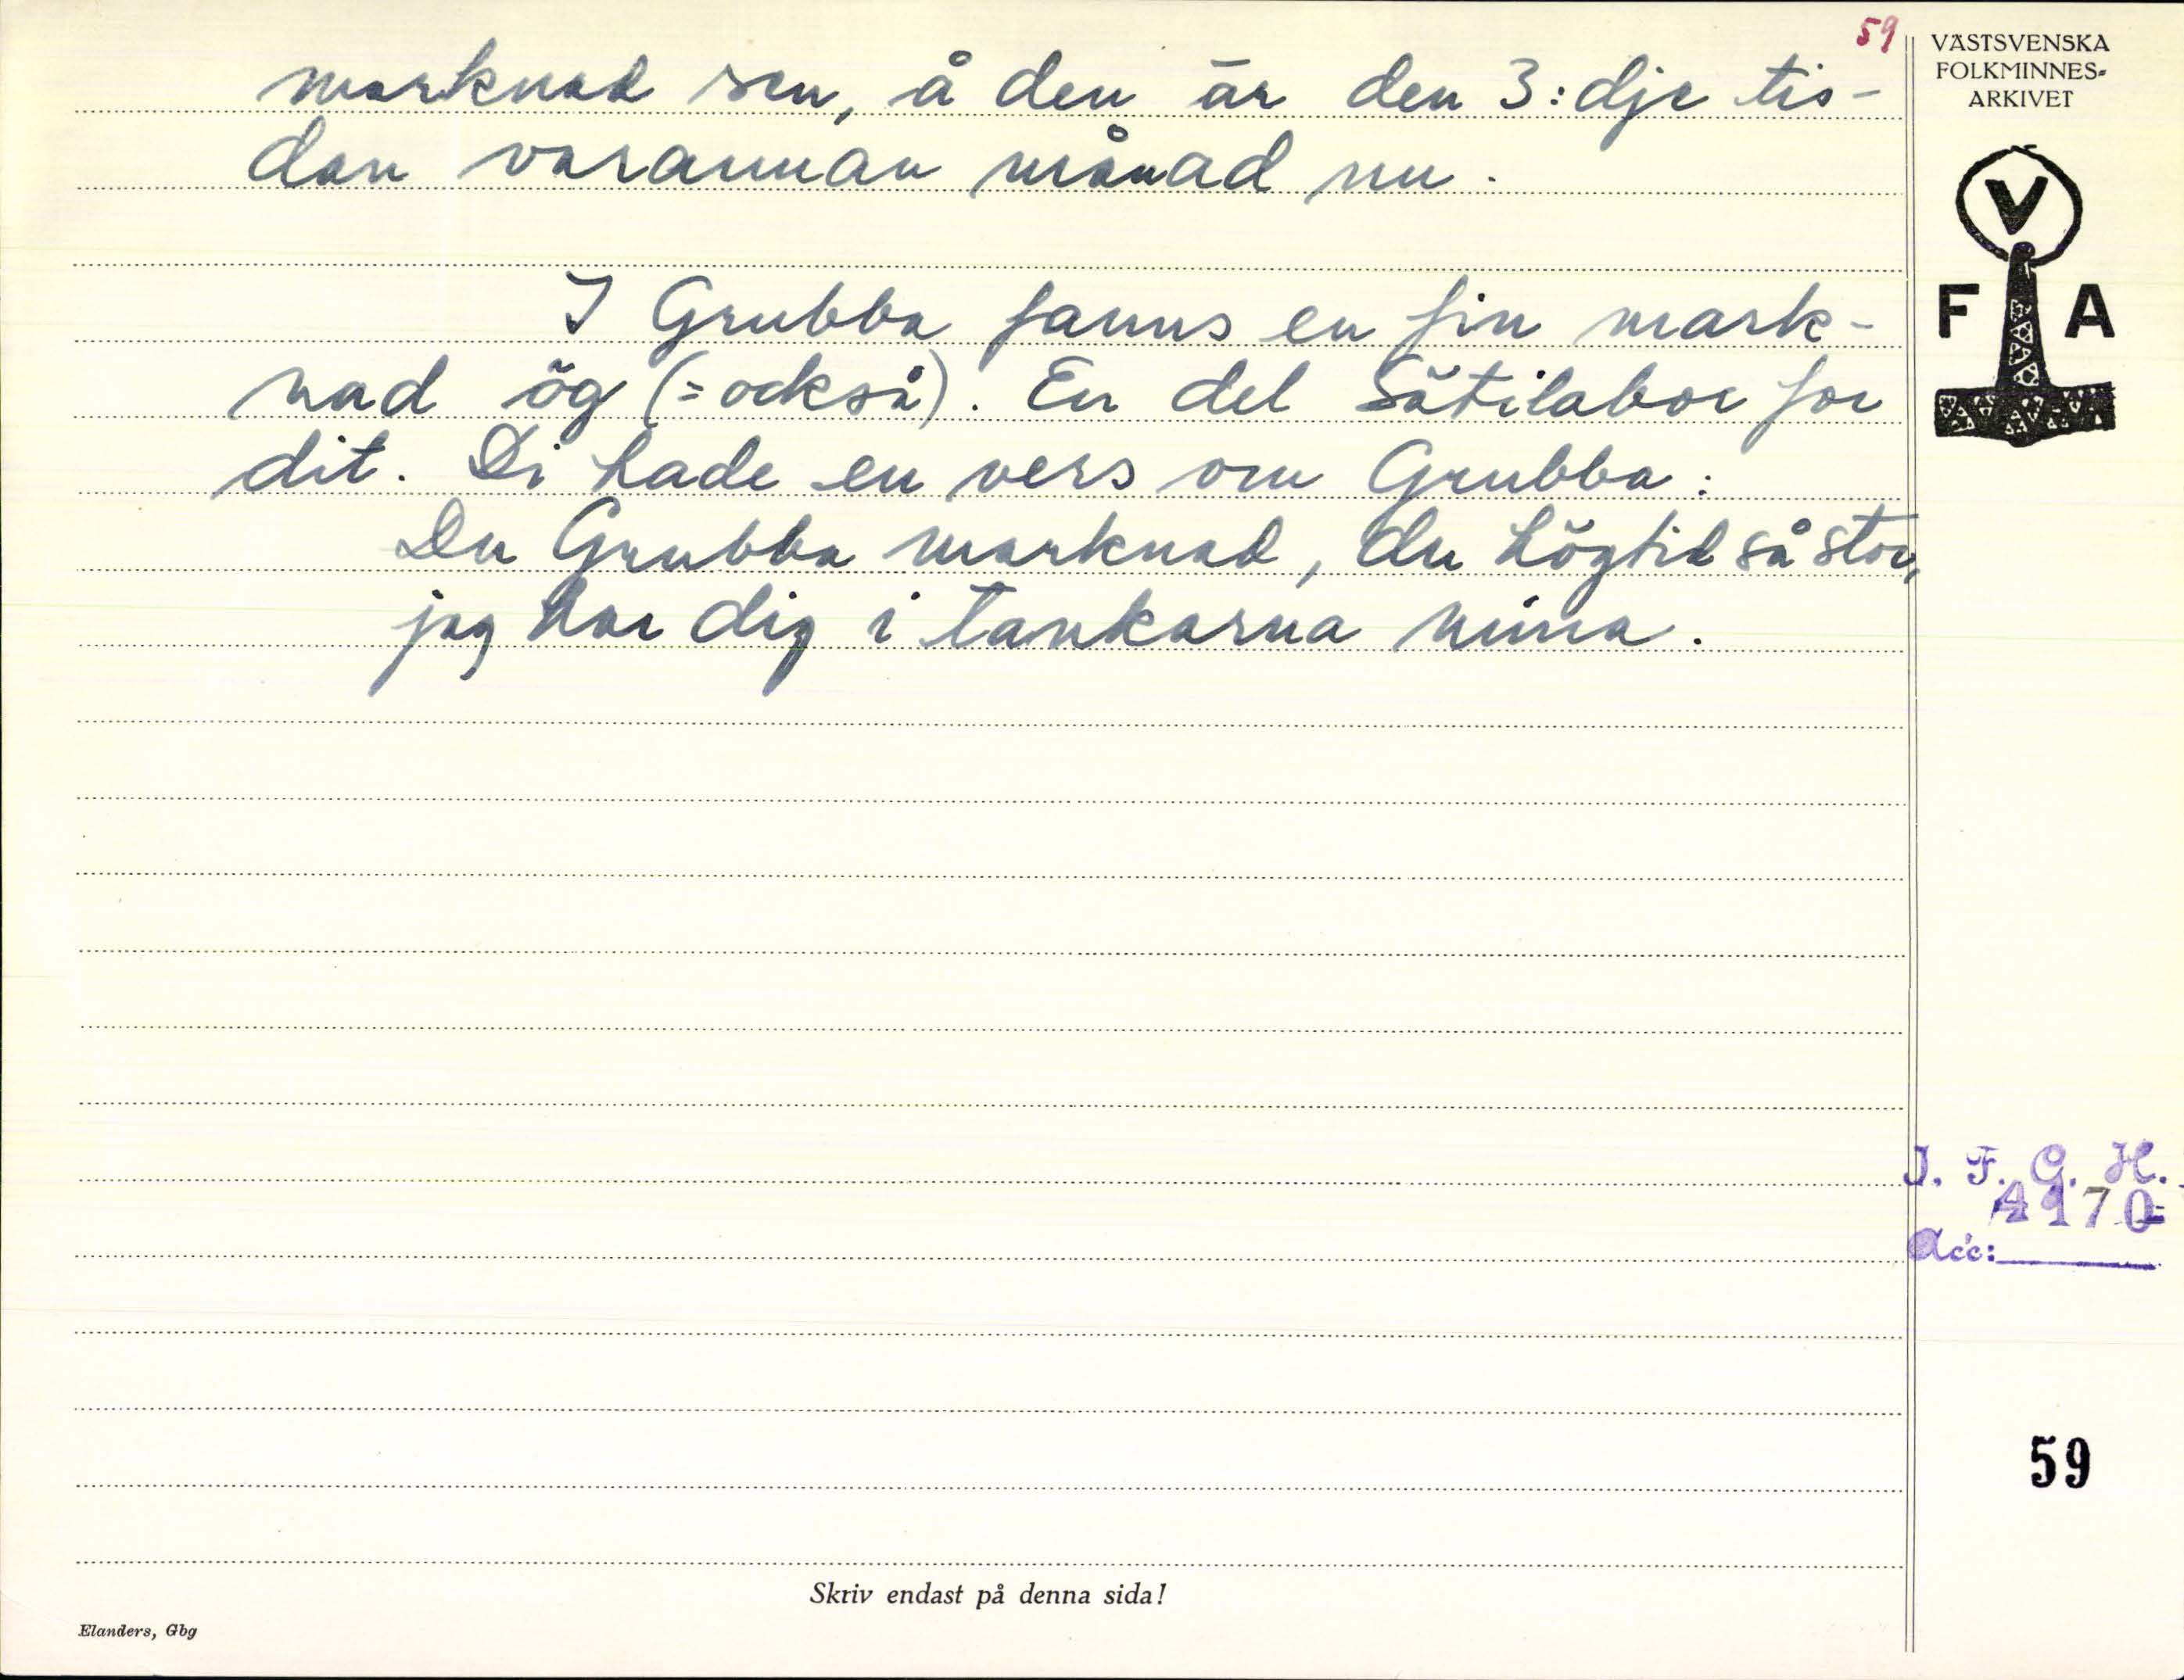 59
marknad sen, å den är den 3:dje tis-
dan varannan månad nu.
I Grubba fanns en fin mark-
nad ög (= också). En del Sätilabor for
dit. Di hade en vers om Grubba:
Du Grubba marknad, du högtid så stor,
jag har dig i tankarna mina.
VÄSTSVENSKA
FOLKMINNES-
ARKIVET
V
F A
I. F. G. H.
4170
Acc:
59
Skriv endast på denna sida!
Elanders, Gbg